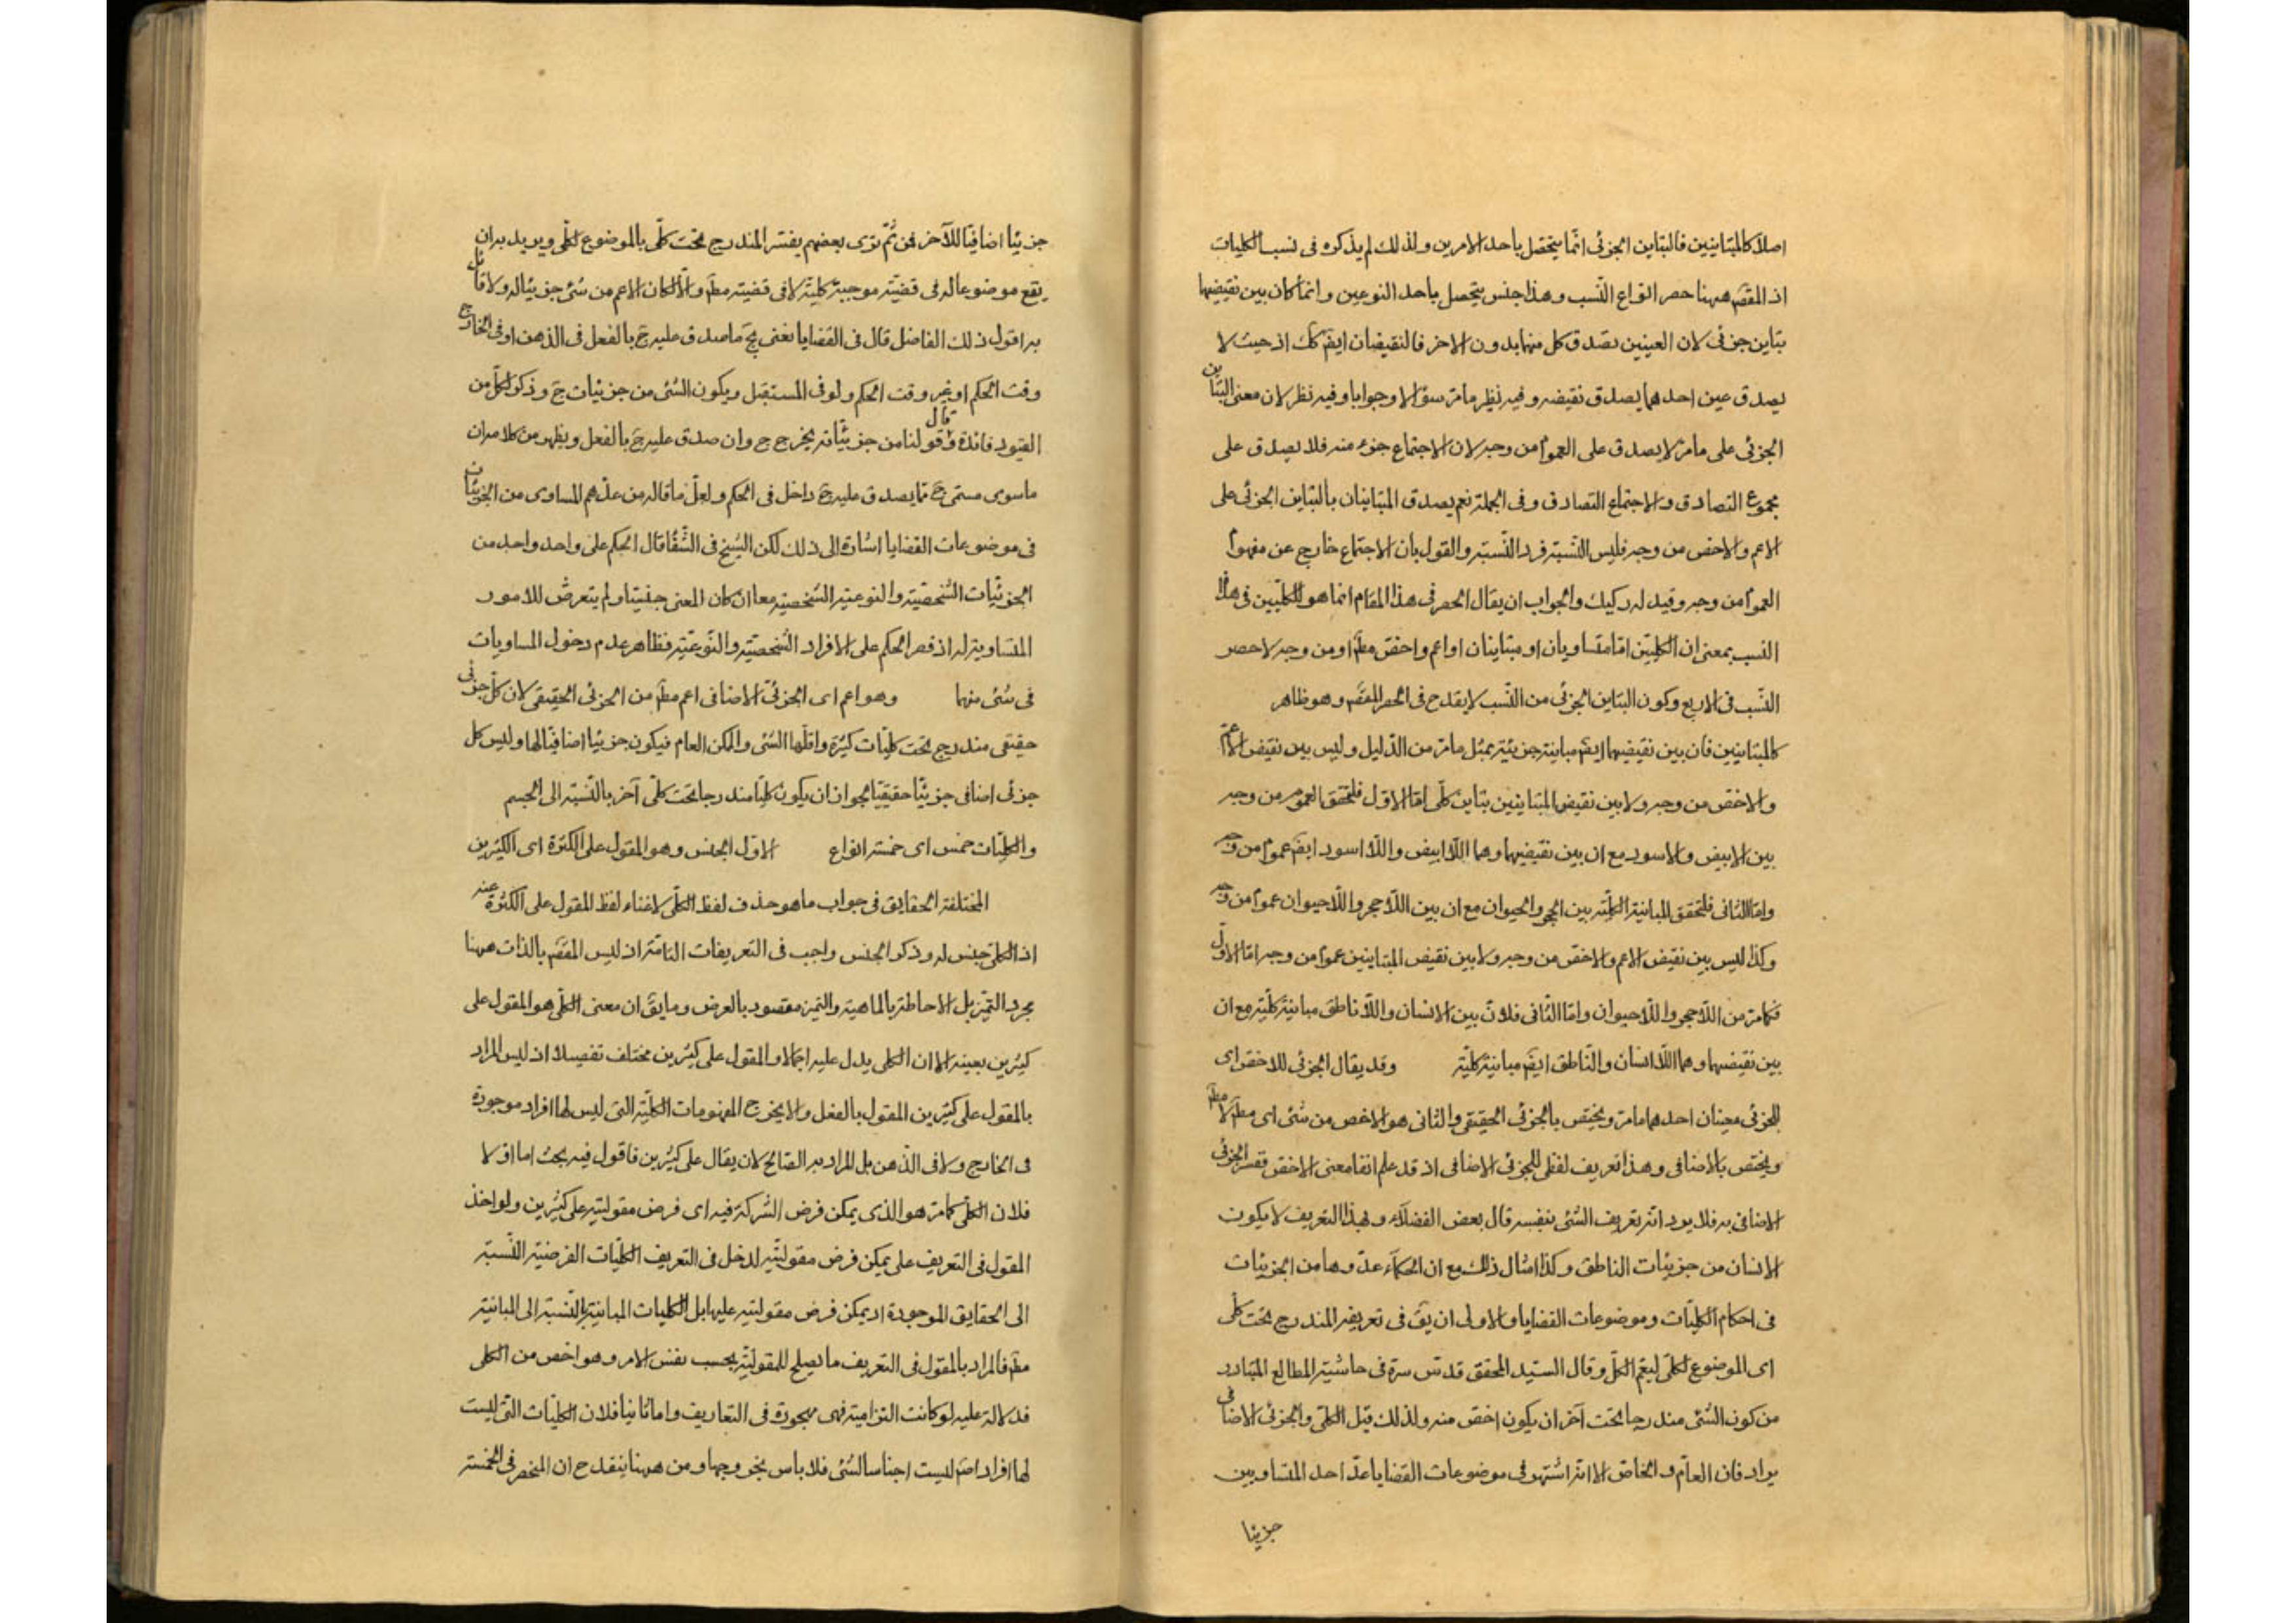 اصلا كالمتباينين فالتباين الجزئى انما يتحصل باحد الامرين ولذلك لم يذكره فى نسب الكليات
اذ المقصَ ههنا حصر انواع النسب وهذا جنس يتحصل باحد النوعين وانما كان بين نقيضيهما
تباين جزئى لان العينين تصدق كل منهما بدون الاخر فالنقيضان ايضَ كك اذ حيث لا
يصدق عين احدهما يصدق نقيضه وفيه نظير ما مر سؤالا وجوابا وفيه نظر لان معنى التباين
الجزئى على ما مر لا يصدق على العموم من وجه لان الاجتماع جزء منه فلا يصدق على
مجموع التصادق والاجتماع التصادق وفى الجملة نعم يصدق المتباينان بالتباين الجزئى على
الاعم والاخص من وجه فليس النسبة فرد النسبة والقول بان الاجتماع خارج عن مفهوم
العموم من وجه وقيد له ركيك والجواب ان يقال الحصر فى هذا المقام انما هو للكليين فى هذه
النسب بمعنى ان الكليين اما متساويان او متباينان او اعم واخص مطَ او من وجه لا حصر
النسب فى الاربع وكون التباين الجزئى من النسب لا يقدح فى الحصر المقصَ وهو ظاهر
كالمتباينين فان بين نقيضيهما ايضَ مباينة جزئية بمثل ما مر من الدليل وليس بين نقيض الاعم
والاخص من وجه ولا بين نقيض المتباينين تباين كلى اما الاول فلتحقق العموم من وجه
بين الابيض والاسود مع ان بين نقيضيهما وهما اللاابيض واللااسود ايضَ عموم من وجه
واما الثانى فلتحقق المباينة الكلية بين الحجر والحيوان مع ان بين اللاحجر واللاحيوان عموم من وجه
وكذا ليس بين نقيض الاعم والاخص من وجه ولا بين نقيض المتباينين عموم من وجه اما الاول
فكما مر من اللاحجر واللاحيوان واما الثانى فلان بين الانسان واللاناطق مباينة كلية مع ان
بين نقيضيهما وهما اللاانسان والناطق ايضَ مباينة كلية وقد يقال الجزئى للاخص اى
للجزئى معينان احدهما ما مر ويختص بالجزئى الحقيقى والثانى هو الاخص من شئ اى مطَ لا مطَ
ويختص بالاضافى وهذا تعريف لفظى للجزئى الاضافى اذ قد علم انفا معنى الاخص ففسر الجزئى
الاضافى به فلا يرد انه تعريف الشئ بنفسه قال بعض الفضلاء وبهذا التعريف لا يكون
الانسان من جزئيات الناطق وكذا امثال ذلك مع ان الحكماء عدوها من الجزئيات
فى احكام الكليات وموضوعات القضايا والاولى ان يقَ فى تعريفه المندرج تحت كلى
اى الموضوع لكلى ليعم الكل وقال السيد المحقق قدس سره فى حاشية المطالع المتبادر
من كون الشئ مندرجا تحت آخر ان يكون اخص منه ولذلك قيل الكلى والجزئى الاضافى
يراد فان العام والخاص الا انه اشتهر فى موضوعات القضايا عد احد المتساويين
جزئيا
جزئيا اضافيا للآخر فمن ثَم ترى بعضهم يفسر المندرج تحت كلى بالموضوع لكلى ويريد به ان
يقع موضوعا له فى قضية موجبة كلية لا فى قضية مطَ والا لكان الاعم من شئ جزئيا له ولا قائل
به اقول ذلك الفاضل قال فى القضايا نعنى بجَ ما صدق عليه جَ بالفعل فى الذهن او فى الخارج
وقت الحكم او غير وقت الحكم ولو فى المستقبل ويكون الشئ من جزئيات جَ وذكر لكل من
القيود فائدة وقال قولنا من جزئياته يخرج ج وان صدق عليه جَ بالفعل ويظهر من كلامه ان
ما سوى مسمى جَ مما يصدق عليه جَ داخل فى الحكم ولعل ما قاله من عدهم المساوى من الجزئيات
فى موضوعات القضايا اشارة الى ذلك لكن الشيخ فى الشفا قال الحكم على واحد واحد من
الجزئيات الشخصية والنوعية الشخصية معا ان كان المعنى جنسيا ولم يتعرض للامور
المتساوية له اذ قصر الحكم على الافراد الشخصية والنوعية فظاهر عدم دخول المساويات
فى شئ منهما وهو اعم اى الجزئى الاضافى اعم مطَ من الجزئى الحقيقى لان كل جزئى
حقيقى مندرج تحت كليات كثيرة واقلها الشئ والممكن العام فيكون جزئيا اضافيا لها وليس كل
جزئى اضافى جزئيا حقيقيا لجواز ان يكون كليا مندرجا تحت كلى آخر بالنسبة الى الجسم
والكليات خمس اى خمسة انواع الاول الجنس وهو المقول على الكثرة اى الكثيرين
المختلفة الحقايق فى جواب ما هو حذف لفظ الكلى لاغناء لفظ المقول على الكثرة عنه
اذ الكلى جنس له وذكر الجنس واجب فى التعريفات التامة اذ ليس المقصَ بالذات ههنا
مجرد التميز بل الاحاطة بالماهية والتميز مقصود بالعرض وما يقَ ان معنى الكلى هو المقول على
كثيرين بعينه الا ان الكلى يدل عليه اجمالا والمقول على كثيرين مختلف تفصيلا اذ ليس المراد
بالمقول على كثيرين المقول بالفعل والا يخرج المفهومات الكلية التى ليس لها افراد موجودة
فى الخارج ولا فى الذهن بل المراد به الصالح لان يقال على كثيرين فاقول فيه بحث اما اولا
فلان الكلى كما مر هو الذى يمكن فرض الشركة فيه اى فرض مقوليته على كثيرين ولو اخذ
المقول فى التعريف على يمكن فرض مقوليته لدخل فى التعريف الكليات الفرضية النسبة
الى الحقايق الموجودة اذ يمكن فرض مقوليته عليها بل الكليات المباينة بالنسبة الى المباينة
مطَ فالمراد بالمقول فى التعريف ما يصلح للمقولية بحسب نفس الامر وهو اخص من الكلى
فدلالة عليه لو كانت التزامية فهى مهجورة فى التعاريف واما ثانيا فلان الكليات التى ليست
لها افراد اصَ ليست اجناسا لشئ فلا باس بخروجها ومن ههنا ينقدح ان المنحصر فى الخمسة